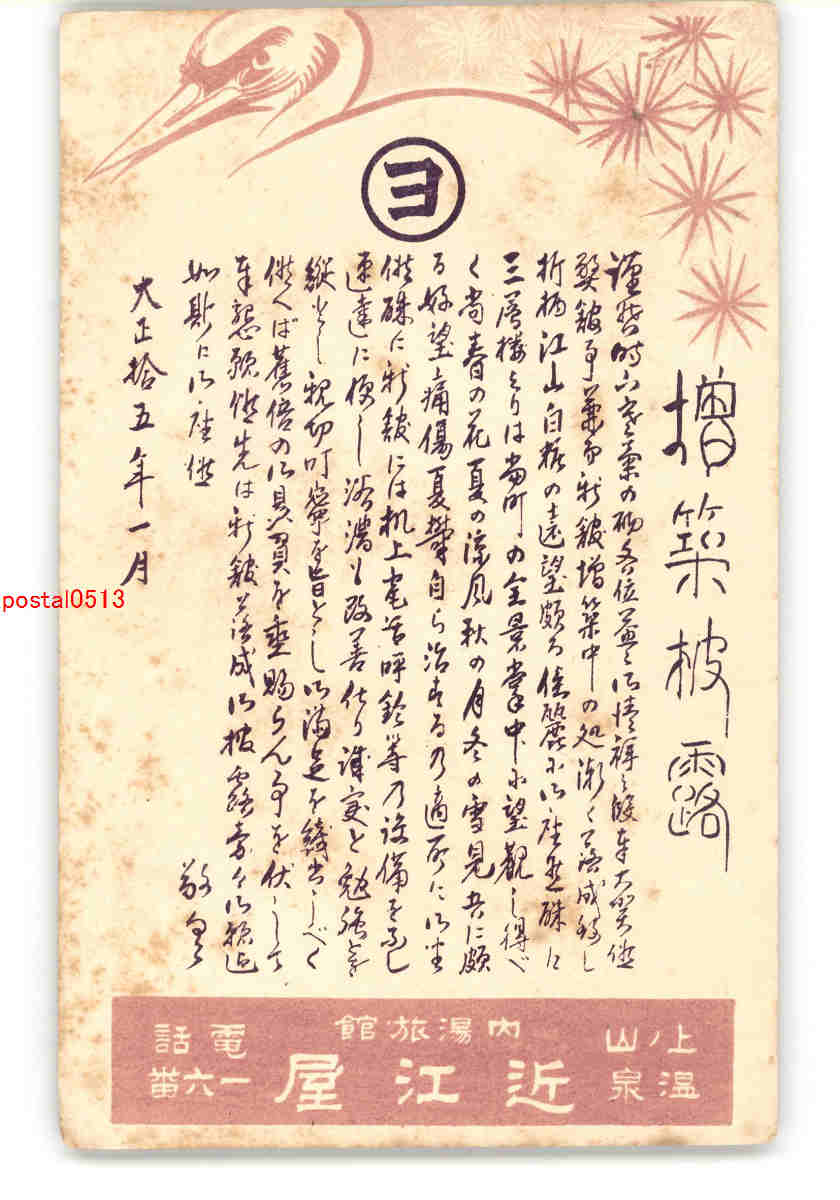 ヨ
増築披露
謹啓時下寒気の砌各位益々御清祥之段奉大賀候
弊館事兼而新館増築中の処漸く落成致し
折柄江山白粧の遠望頗る佳麗に御座候殊に
三層楼よりは当町の全景掌中に望観し得べ
く尚春の花夏の涼風秋の月冬の雪見共に頗
る好望痛傷憂鬱自ら治するの適所に御坐
候殊に新館には机上電話呼鈴等の設備をなし
速達に便し浴漕も改善仕り誠実と勉強を
縦とし親切叮寧を旨とし御満足を得べく
候へば旧倍の御贔負を垂賜らん事を伏して
奉懇願候先は新館落成御披露旁々御願迄
如斯に御座候
敬具
大正拾五年一月
上ノ山温泉
内湯旅館
近江屋
電話一六番
postal0513